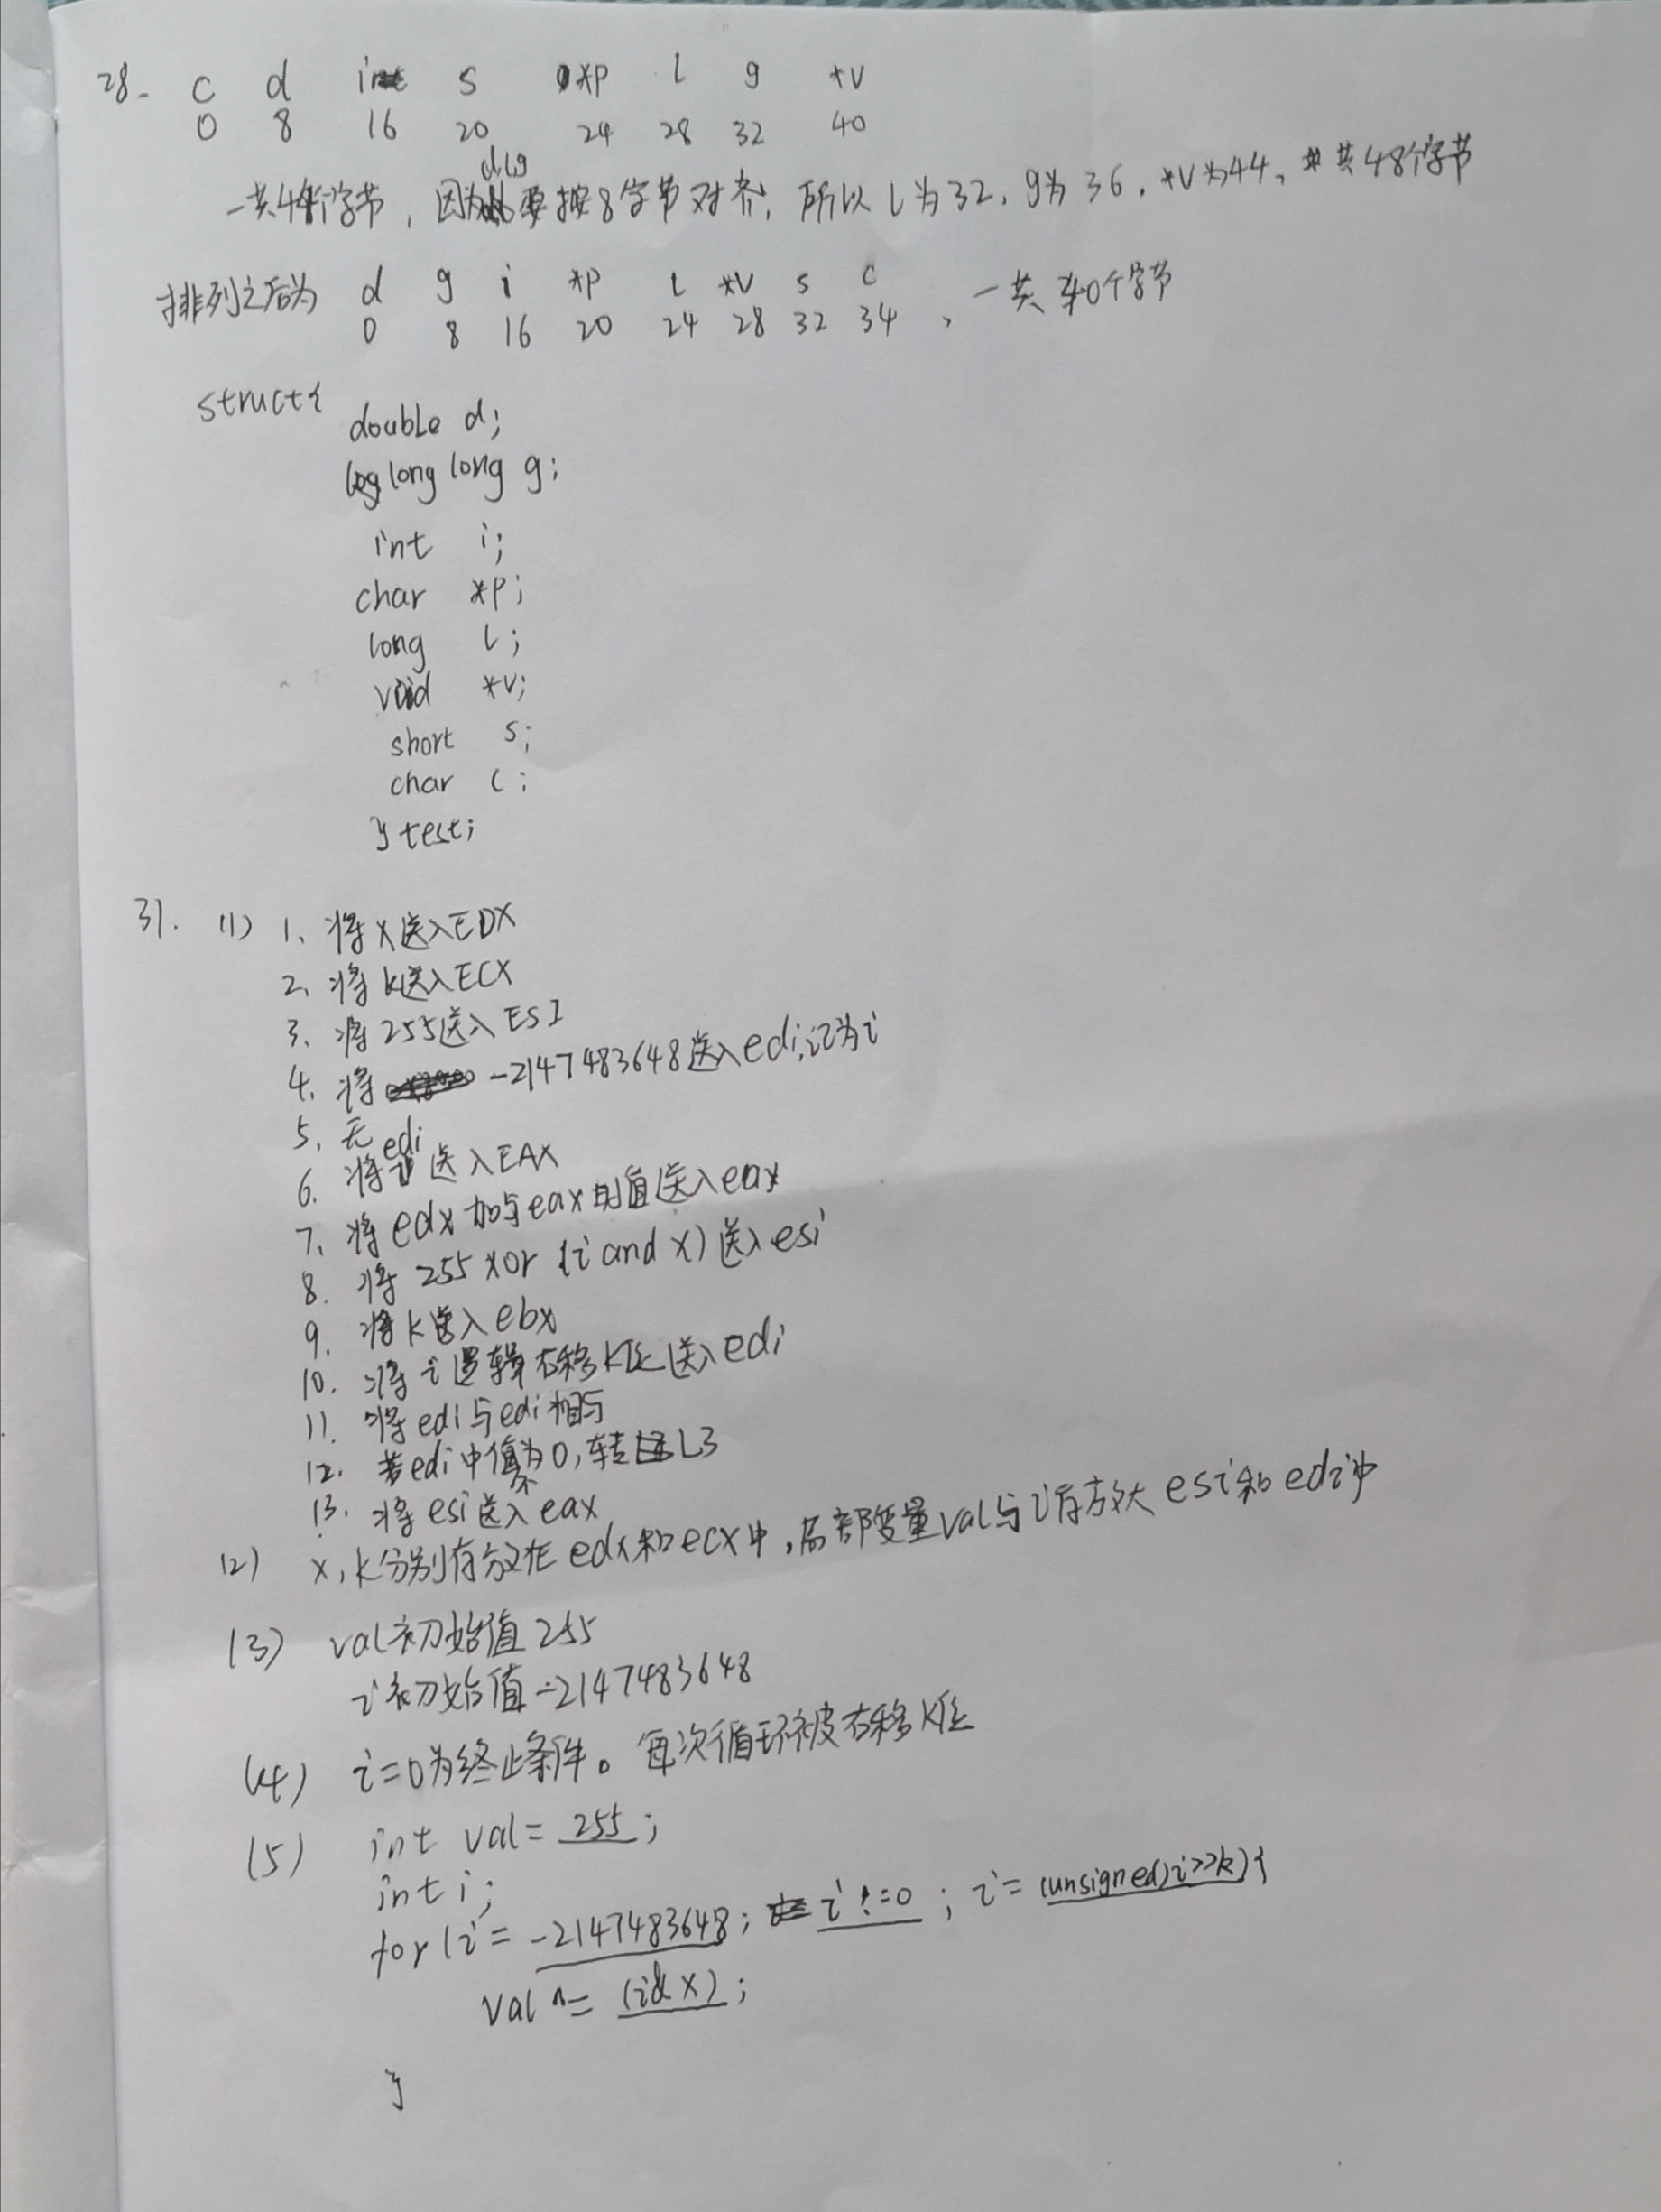 28. c d i s *p l g *v
0 8 16 20 24 28 32 40
d l g
一共44个字节，因为要按8字节对齐，所以l为32，g为36，*v为44，共48个字节
排列之后为 d g i *p l *v s c
0 8 16 20 24 28 32 34，一共40个字节
struct{
double d;
long long g;
int i;
char *p;
long l;
void *v;
short s;
char c;
} test;
31. (1) 1、将x送入EDX
2、将k送入ECX
3、将255送入ESI
4、将 -2147483648送入edi,记为i
5、无
6、将edi送入EAX
7、将edx 与eax的值送入eax
8、将 255 xor (i and x) 送入esi
9、将k送入ebx
10、将i逻辑右移k位送入edi
11、将edi与edi相与
12、若edi中值不为0,转L3
13、将esi送入eax
(2) x,k分别存放在edx和ecx中,局部变量val与i存放在esi和edi中
(3) val初始值255
i初始值-2147483648
(4) i=0为终止条件。每次循环被右移k位
(5) int val= 255;
int i;
for(i= -2147483648; i!=0; i= (unsigned)i>>k){
val ^= (i&x);
}